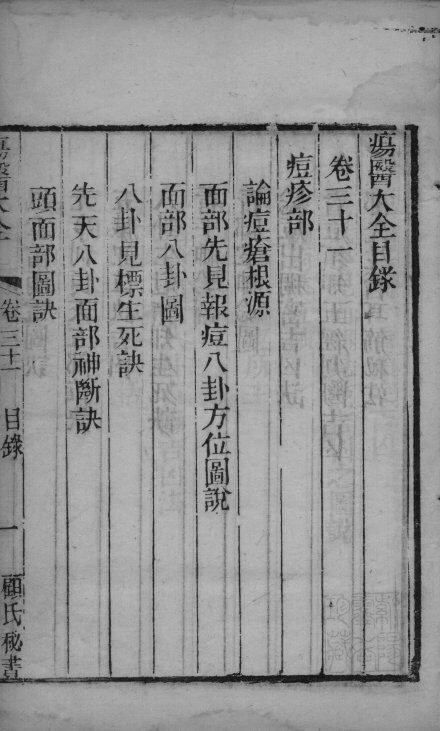 瘍醫大全目錄
卷三十一
痘疹部
論痘瘡根源
面部先見報痘八卦方位圖說
面部八卦圖
八卦見標生死訣
先天八卦面部神斷訣
頭面部圖訣
瘍醫大全 卷三十一 目錄 一 顧氏秘書